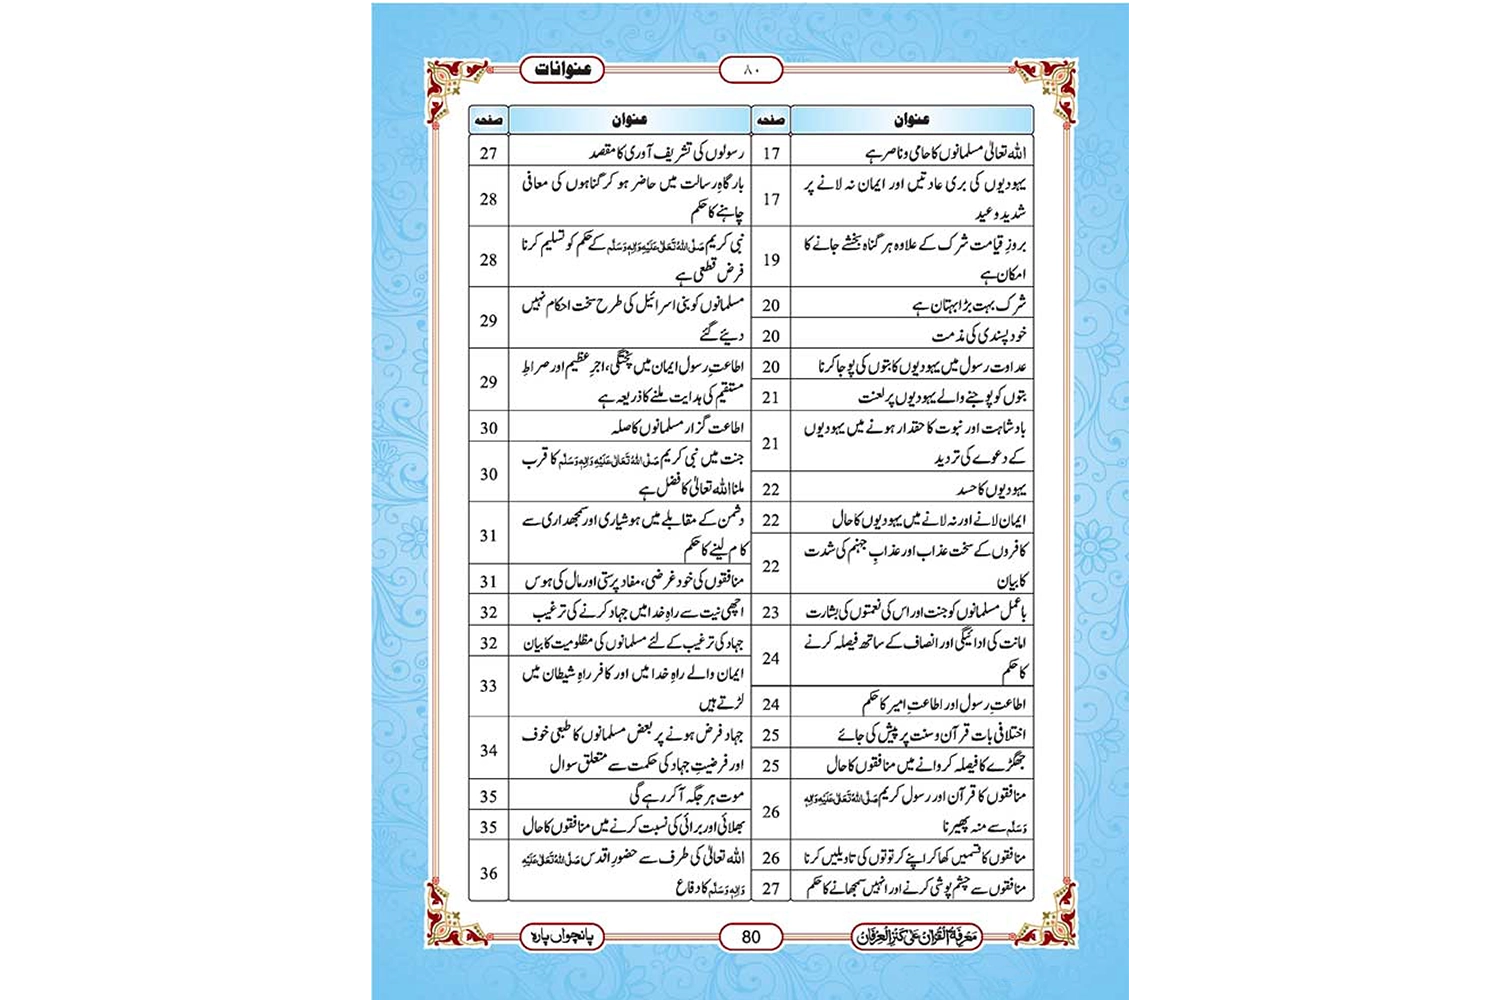 عنوانات ۸۰
عنوان صفحہ
اللہ تعالیٰ مسلمانوں کا حامی و ناصر ہے 17
یہودیوں کی بری عادتیں اور ایمان نہ لانے پر
شدید وعید 17
بروزِ قیامت شرک کے علاوہ ہر گناہ بخشے جانے کا
امکان ہے 19
شرک بہت بڑا بہتان ہے 20
خود پسندی کی مذمت 20
عداوت رسول میں یہودیوں کا بتوں کی پوجا کرنا 20
بتوں کو پوجنے والے یہودیوں پر لعنت 21
بادشاہت اور نبوت کا حقدار ہونے میں یہودیوں
کے دعوے کی تردید 21
یہودیوں کا حسد 22
ایمان لانے اور نہ لانے میں یہودیوں کا حال 22
کافروں کے سخت عذاب اور عذابِ جہنم کی شدت
کا بیان 22
باعمل مسلمانوں کو جنت اور اس کی نعمتوں کی بشارت 23
امانت کی ادائیگی اور انصاف کے ساتھ فیصلہ کرنے
کا حکم 24
اطاعتِ رسول اور اطاعتِ امیر کا حکم 24
اختلافی بات قرآن و سنت پر پیش کی جائے 25
جھگڑے کا فیصلہ کروانے میں منافقوں کا حال 25
منافقوں کا قرآن اور رسول کریم صَلَّی اللہُ تَعَالٰی عَلَیْہِ وَاٰلِہٖ
وَسَلَّم سے منہ پھیرنا 26
منافقوں کا قسمیں کھا کر اپنے کرتوتوں کی تاویلیں کرنا 26
منافقوں سے چشم پوشی کرنے اور انہیں سمجھانے کا حکم 27
عنوان صفحہ
رسولوں کی تشریف آوری کا مقصد 27
بارگاہِ رسالت میں حاضر ہو کر گناہوں کی معافی
چاہنے کا حکم 28
نبی کریم صَلَّی اللہُ تَعَالٰی عَلَیْہِ وَاٰلِہٖ وَسَلَّم کے حکم کو تسلیم کرنا
فرض قطعی ہے 28
مسلمانوں کو بنی اسرائیل کی طرح سخت احکام نہیں
دیئے گئے 29
اطاعتِ رسول ایمان میں پختگی، اجرِ عظیم اور صراطِ
مستقیم کی ہدایت ملنے کا ذریعہ ہے 29
اطاعت گزار مسلمانوں کا صلہ 30
جنت میں نبی کریم صَلَّی اللہُ تَعَالٰی عَلَیْہِ وَاٰلِہٖ وَسَلَّم کا قرب
ملنا اللہ تعالیٰ کا فضل ہے 30
دشمن کے مقابلے میں ہوشیاری اور سمجھداری سے
کام لینے کا حکم 31
منافقوں کی خود غرضی، مفاد پرستی اور مال کی ہوس 31
اچھی نیت سے راہِ خدا میں جہاد کرنے کی ترغیب 32
جہاد کی ترغیب کے لئے مسلمانوں کی مظلومیت کا بیان 32
ایمان والے راہِ خدا میں اور کافر راہِ شیطان میں
لڑتے ہیں 33
جہاد فرض ہونے پر بعض مسلمانوں کا طبعی خوف
اور فرضیتِ جہاد کی حکمت سے متعلق سوال 34
موت ہر جگہ آ کر رہے گی 35
بھلائی اور برائی کی نسبت کرنے میں منافقوں کا حال 35
اللہ تعالیٰ کی طرف سے حضورِ اقدس صَلَّی اللہُ تَعَالٰی عَلَیْہِ
وَاٰلِہٖ وَسَلَّم کا دفاع 36
مَعْرِفَۃُ الْقُرْاٰن عَلٰی کَنْزِ الْعِرْفَان 80 پانچواں پارہ